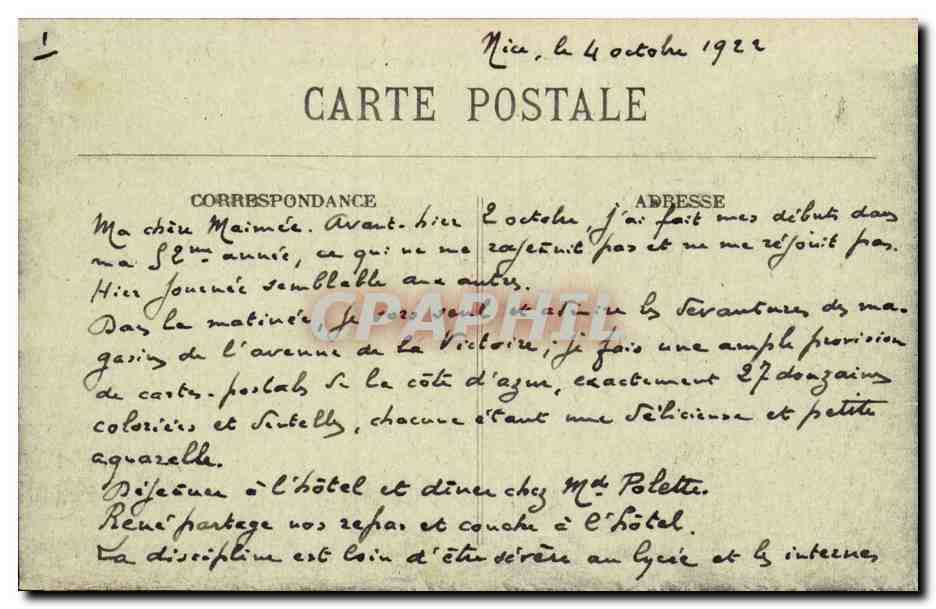 1
Nice, le 4 octobre 1922
CARTE POSTALE
CORRESPONDANCE
ADRESSE
Ma chère Maimée. Avant-hier 2 octobre, j'ai fait mes débuts dans
ma 52me année, ce qui ne me rajeunit pas et ne me réjouit pas.
Hier journée semblable aux autres.
Dans la matinée, je sors seul et admire les devantures des ma-
gasins de l'avenue de la Victoire; je fais une ample provision
de cartes-postales de la côte d'azur, exactement 27 douzaines
coloriées et dentelles, chacune étant une délicieuse et petite
aquarelle.
Déjeûner à l'hôtel et dîner chez Mde Polette.
René partage nos repas et couche à l'hôtel.
La discipline est loin d'être sévère au lycée et les internes
CPAPHIL